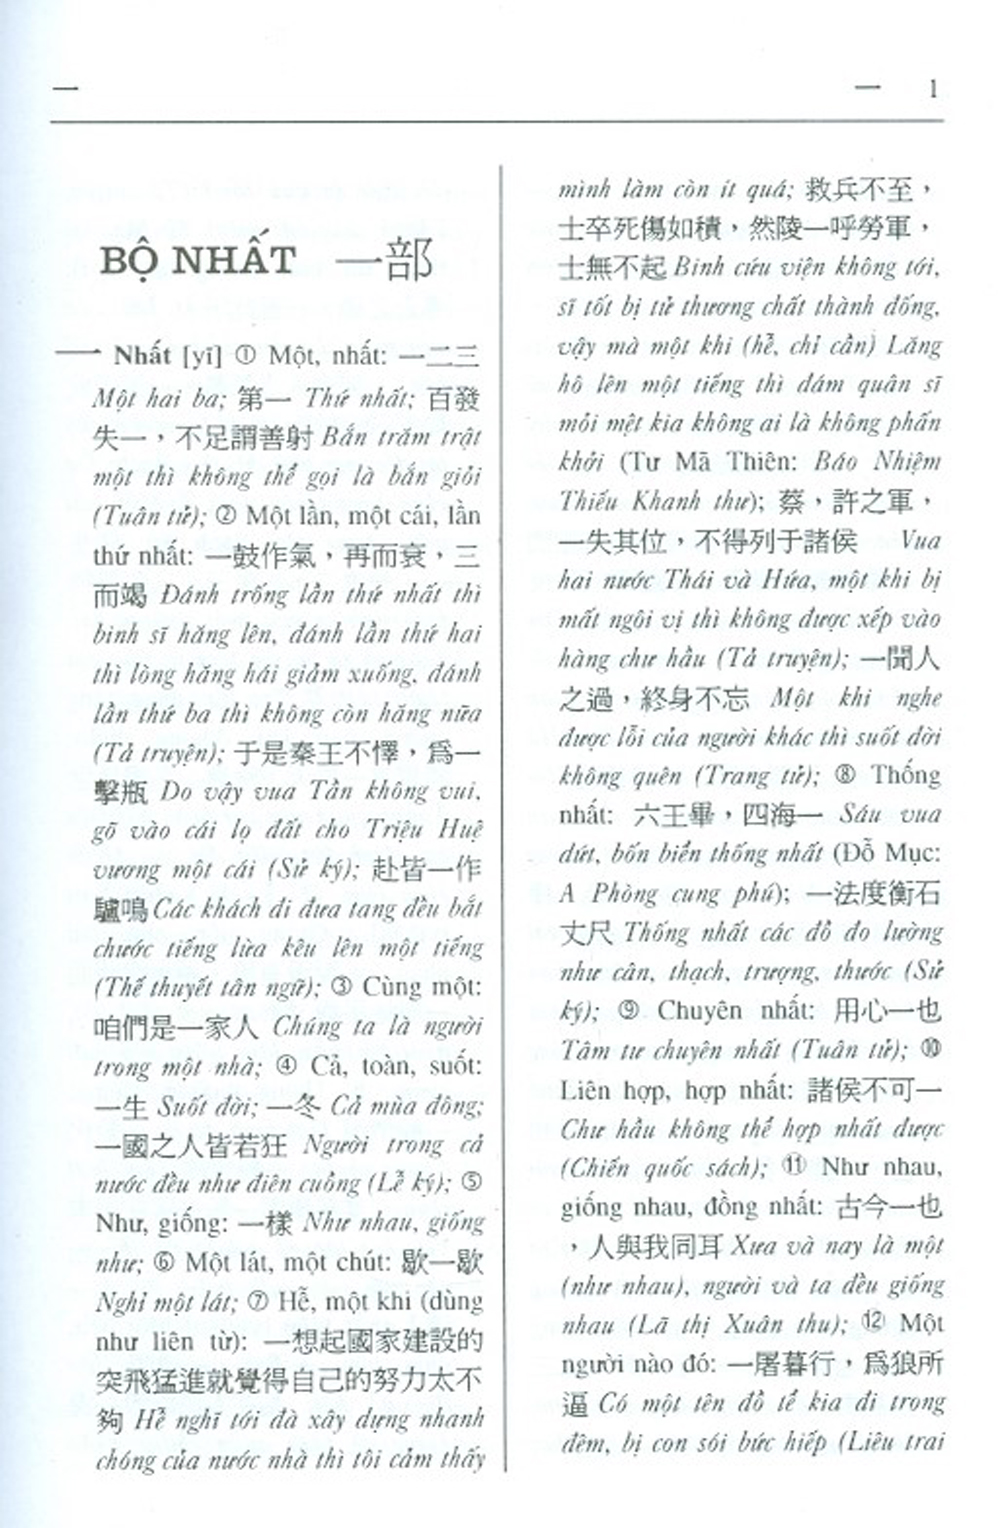 一 一 1
BỘ NHẤT 一部
一 Nhất [yī] ① Một, nhất: 一二三
Một hai ba; 第一 Thứ nhất; 百發
失一，不足謂善射 Bắn trăm trật
một thì không thể gọi là bắn giỏi
(Tuân tử); ② Một lần, một cái, lần
thứ nhất: 一鼓作氣，再而衰，三
而竭 Đánh trống lần thứ nhất thì
binh sĩ hăng lên, đánh lần thứ hai
thì lòng hăng hái giảm xuống, đánh
lần thứ ba thì không còn hăng nữa
(Tả truyện); 于是秦王不懌，爲一
擊瓶 Do vậy vua Tần không vui,
gõ vào cái lọ đất cho Triệu Huệ
vương một cái (Sử ký); 赴皆一作
驢鳴 Các khách đi đưa tang đều bắt
chước tiếng lừa kêu lên một tiếng
(Thế thuyết tân ngữ); ③ Cùng một:
咱們是一家人 Chúng ta là người
trong một nhà; ④ Cả, toàn, suốt:
一生 Suốt đời; 一冬 Cả mùa đông;
一國之人皆若狂 Người trong cả
nước đều như điên cuồng (Lễ ký); ⑤
Như, giống: 一樣 Như nhau, giống
như; ⑥ Một lát, một chút: 歇一歇
Nghỉ một lát; ⑦ Hễ, một khi (dùng
như liên từ): 一想起國家建設的
突飛猛進就覺得自己的努力太不
夠 Hễ nghĩ tới đà xây dựng nhanh
chóng của nước nhà thì tôi cảm thấy
mình làm còn ít quá; 救兵不至，
士卒死傷如積，然陵一呼勞軍，
士無不起 Binh cứu viện không tới,
sĩ tốt bị tử thương chất thành đống,
vậy mà một khi (hễ, chỉ cần) Lăng
hô lên một tiếng thì đám quân sĩ
mỏi mệt kia không ai là không phấn
khởi (Tư Mã Thiên: Báo Nhiệm
Thiếu Khanh thư); 蔡，許之軍，
一失其位，不得列于諸侯 Vua
hai nước Thái và Hứa, một khi bị
mất ngôi vị thì không được xếp vào
hàng chư hầu (Tả truyện); 一聞人
之過，終身不忘 Một khi nghe
được lỗi của người khác thì suốt đời
không quên (Trang tử); ⑧ Thống
nhất: 六王畢，四海一 Sáu vua
dứt, bốn biển thống nhất (Đỗ Mục:
A Phòng cung phú); 一法度衡石
丈尺 Thống nhất các đồ đo lường
như cân, thạch, trượng, thước (Sử
ký); ⑨ Chuyên nhất: 用心一也
Tâm tư chuyên nhất (Tuân tử); ⑩
Liên hợp, hợp nhất: 諸侯不可一
Chư hầu không thể hợp nhất được
(Chiến quốc sách); ⑪ Như nhau,
giống nhau, đồng nhất: 古今一也
，人與我同耳 Xưa và nay là một
(như nhau), người và ta đều giống
nhau (Lã thị Xuân thu); ⑫ Một
người nào đó: 一屠暮行，爲狼所
逼 Có một tên đồ tể kia đi trong
đêm, bị con sói bức hiếp (Liêu trai